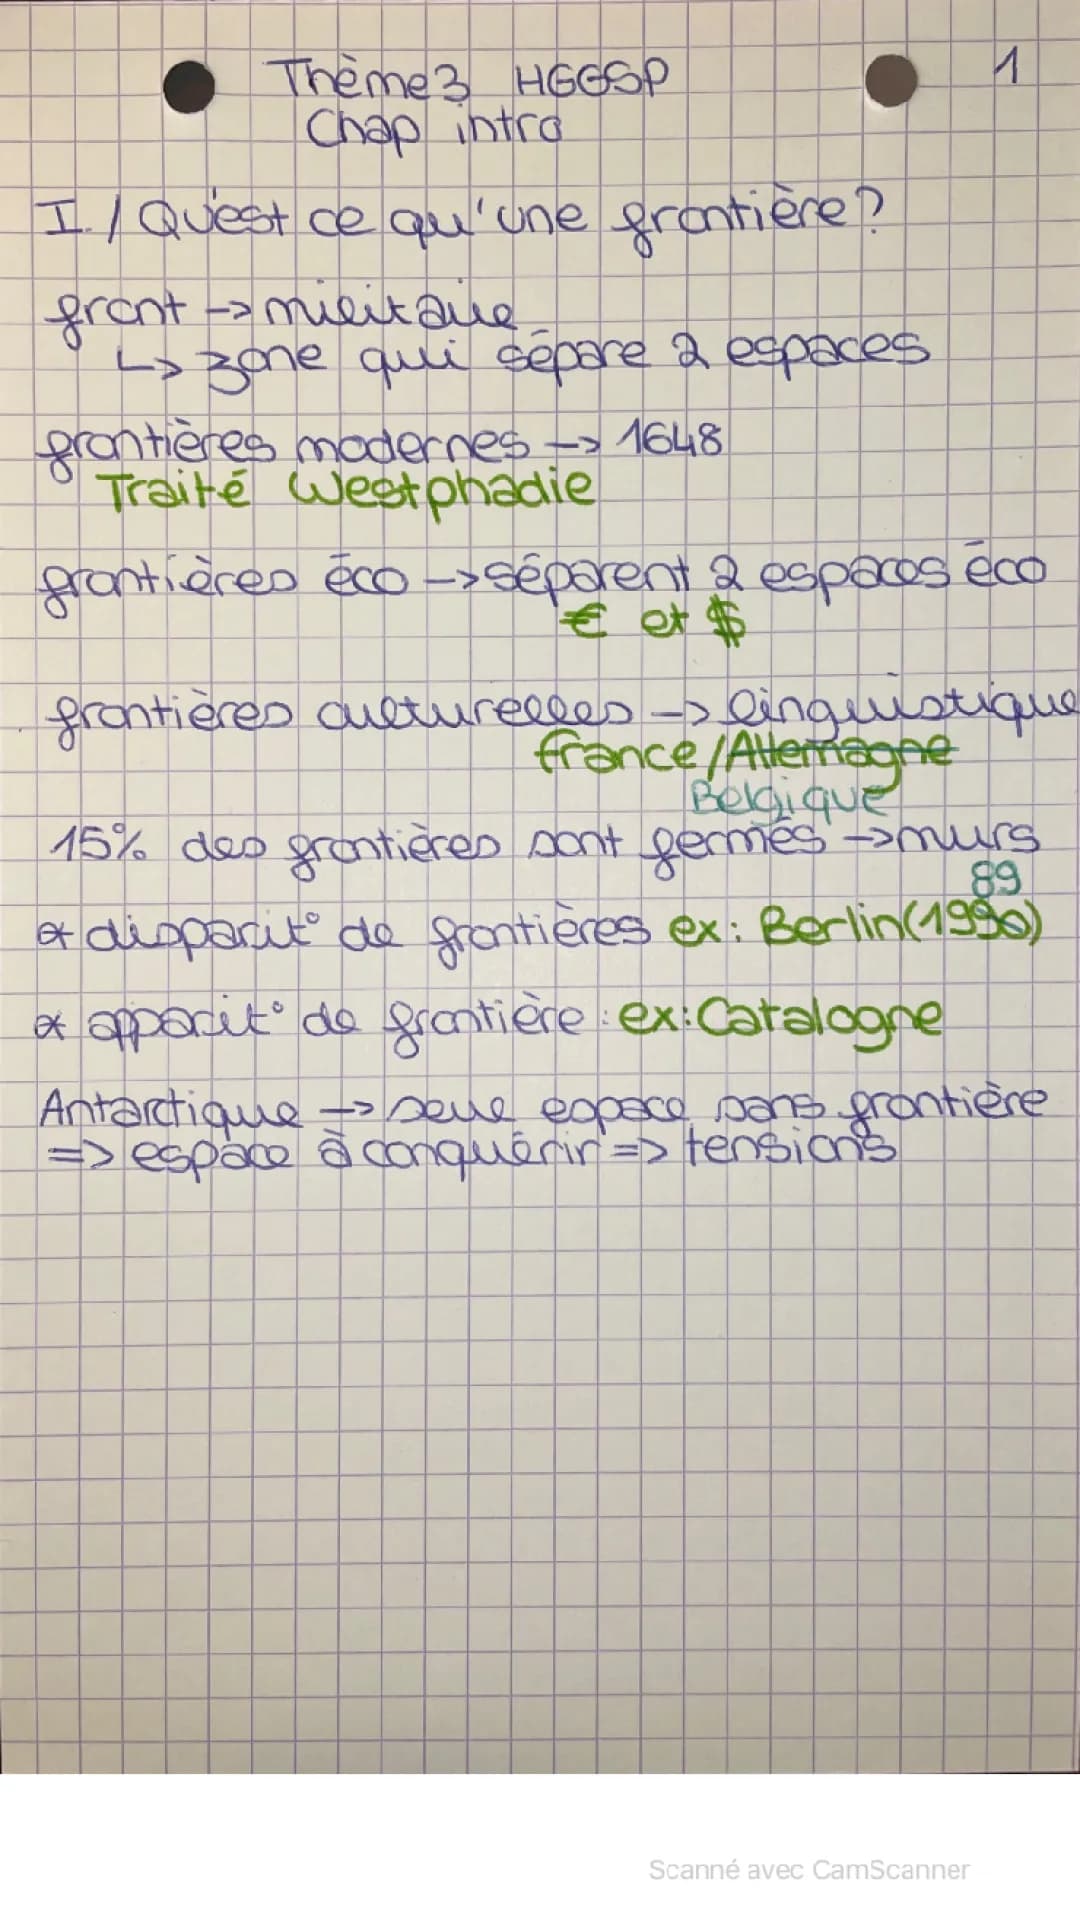 Thème 3 HGGSP
1
Chap intro
I./ Qu'est ce qu'une frontière ?
front -> militaire
↳ zone qui sépare 2 espaces
frontières modernes -> 1648
Traité Westphadie
frontières éco -> séparent 2 espaces éco
€ et $
frontières culturelles -> linguistique
france/Allemagne
Belgique
15% des frontières sont fermés -> murs
89
* disparit° de frontières ex: Berlin (1990)
* apparit° de frontière : ex: Catalogne
Antarctique -> seul espace sans frontière
=> espace à conquérir => tensions
Scanné avec CamScanner